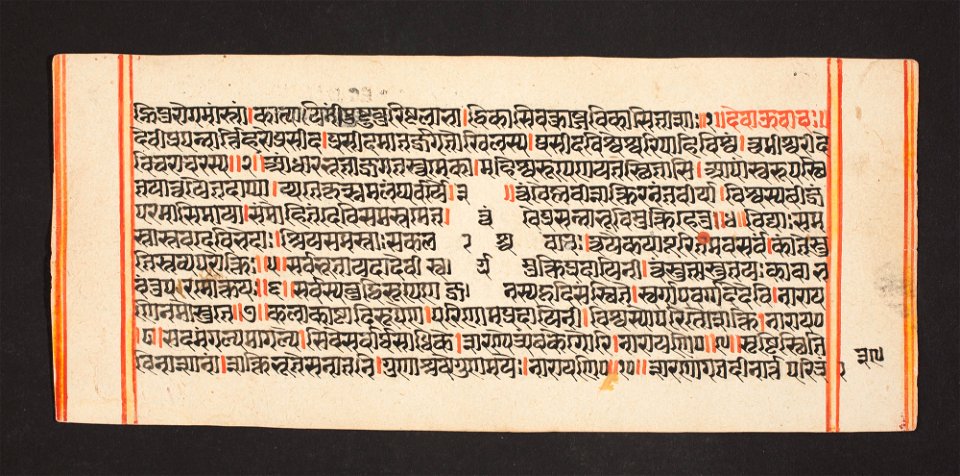 ह्निपुरोगमास्तां। कात्यायिनीं तुष्टुवुरिष्टलाभा। द्विकासिवक्त्राब्जविकासिताशाः॥१॥देवा ऊचुः॥
देवी प्रपन्नार्त्तिहरे प्रसीद। प्रसीद मातर्जगतोखिलस्य। प्रसीद विश्वेश्वरि पाहि विश्वं। त्वमीश्वरी दे
वि चराचरस्य॥२॥ आधारभूता जगतस्त्वमेका। महिस्वरूपेण यतः स्थितासि। अपां स्वरूपस्थि
तया त्वयैतदाप्या। य्यते कृत्स्नमलंघ्यवीर्ये॥३॥ त्वं वैष्णवीशक्तिरनंतवीर्या। विश्वस्य बीजं
परमासि माया। संमोहितं देवि समस्तमेतत्। त्वं वै प्रसन्ना भुवि मुक्तिहेतुः॥४॥ विद्याः सम
स्तास्तव देवि भेदाः। स्त्रियः समस्ताः सकल त्वयैकया पूरितमंबयैतत्। का ते स्तु
तिः स्तव्यपरापरोक्तिः॥५॥ सर्वभूता यदा देवी स्वर्ग मुक्तिप्रदायिनी। त्वं स्तुता स्तुतये का वा भ
वंतु परमोक्तयः॥६॥ सर्वस्य बुद्धिरूपेण जनस्य हृदि संस्थिते। स्वर्गापवर्गदे देवि। नाराय
णि नमोस्तुते॥७॥ कलाकाष्ठादिरूपेण। परिणामप्रदायिनी। विश्वस्योपरतौ शक्ते। नारायण
॥८॥ सर्वमंगलमांगल्ये। शिवे सर्वार्थसाधिके। शरण्ये त्र्यंबके गौरि। नारायणि॥९॥ सृष्टिस्थिति
विनाशानां। शक्तिभूते सनातनि। गुणाश्रये गुणमये। नारायणि॥१०॥ शरणागतदीनार्त्त परित्र